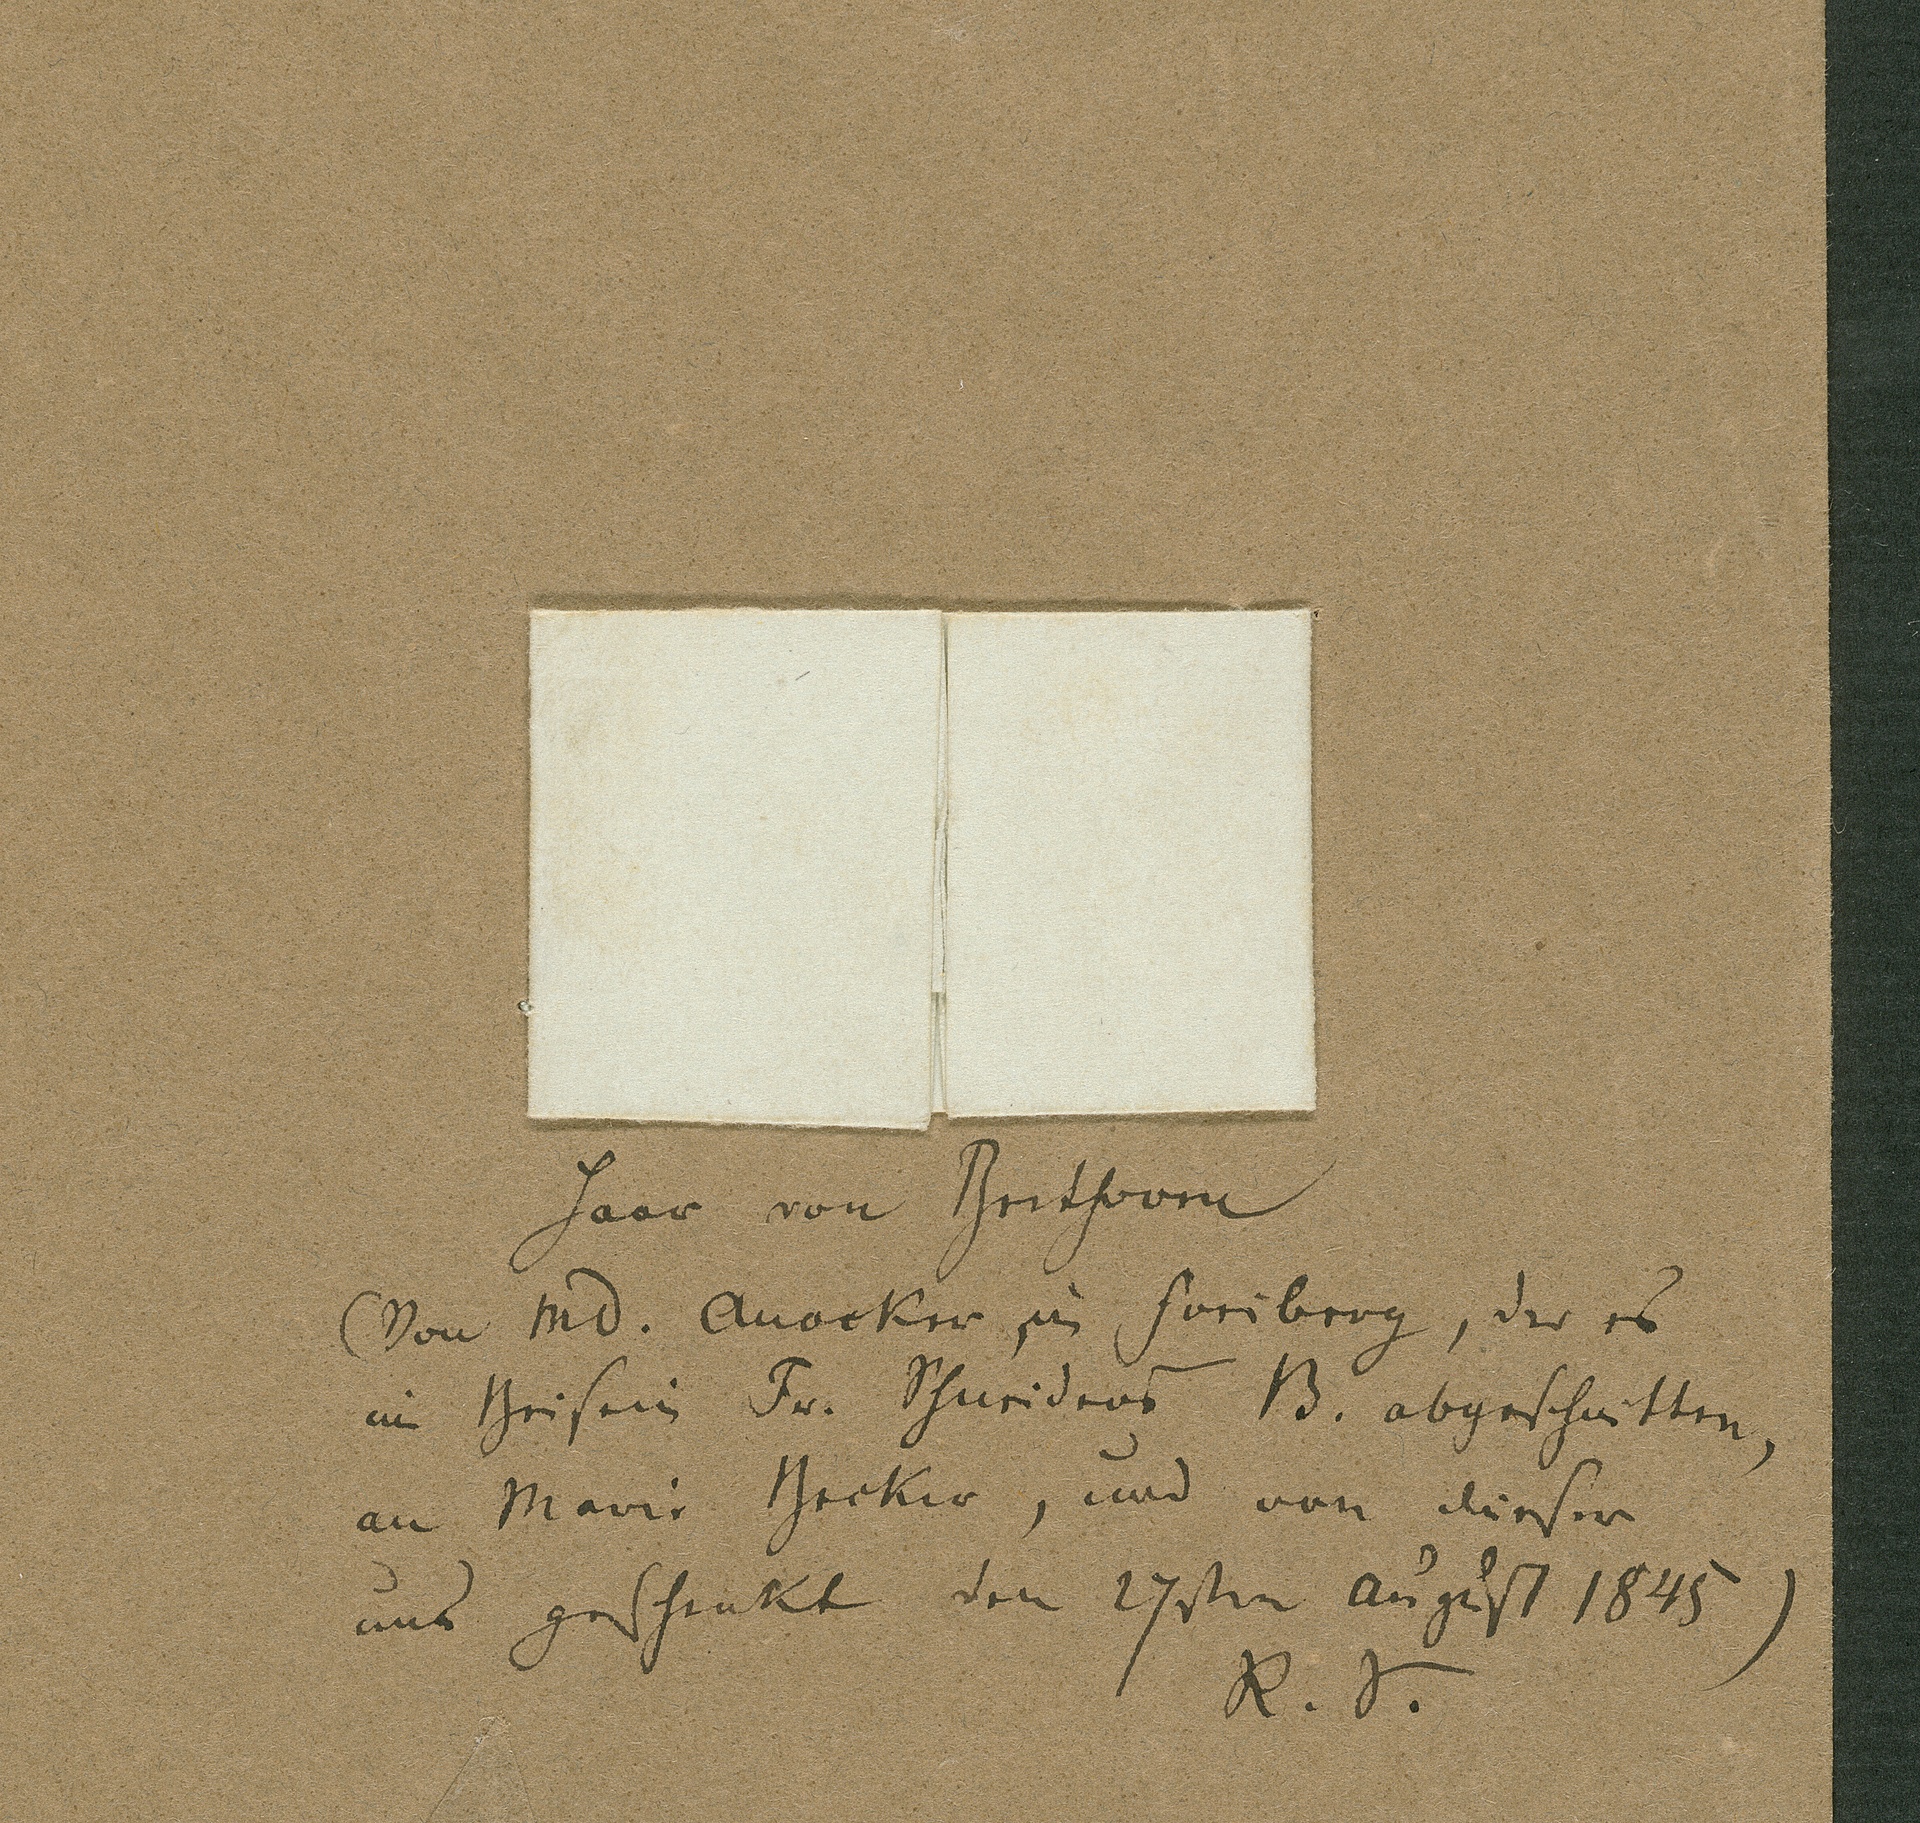 Haar von Beethoven
(Von MD. Anacker in Freiberg, der es
im Beisein Fr. Schneiders B. abgeschnitten,
an Marie Becker, und von dieser
uns geschenkt den 27sten August 1845)
R. S.